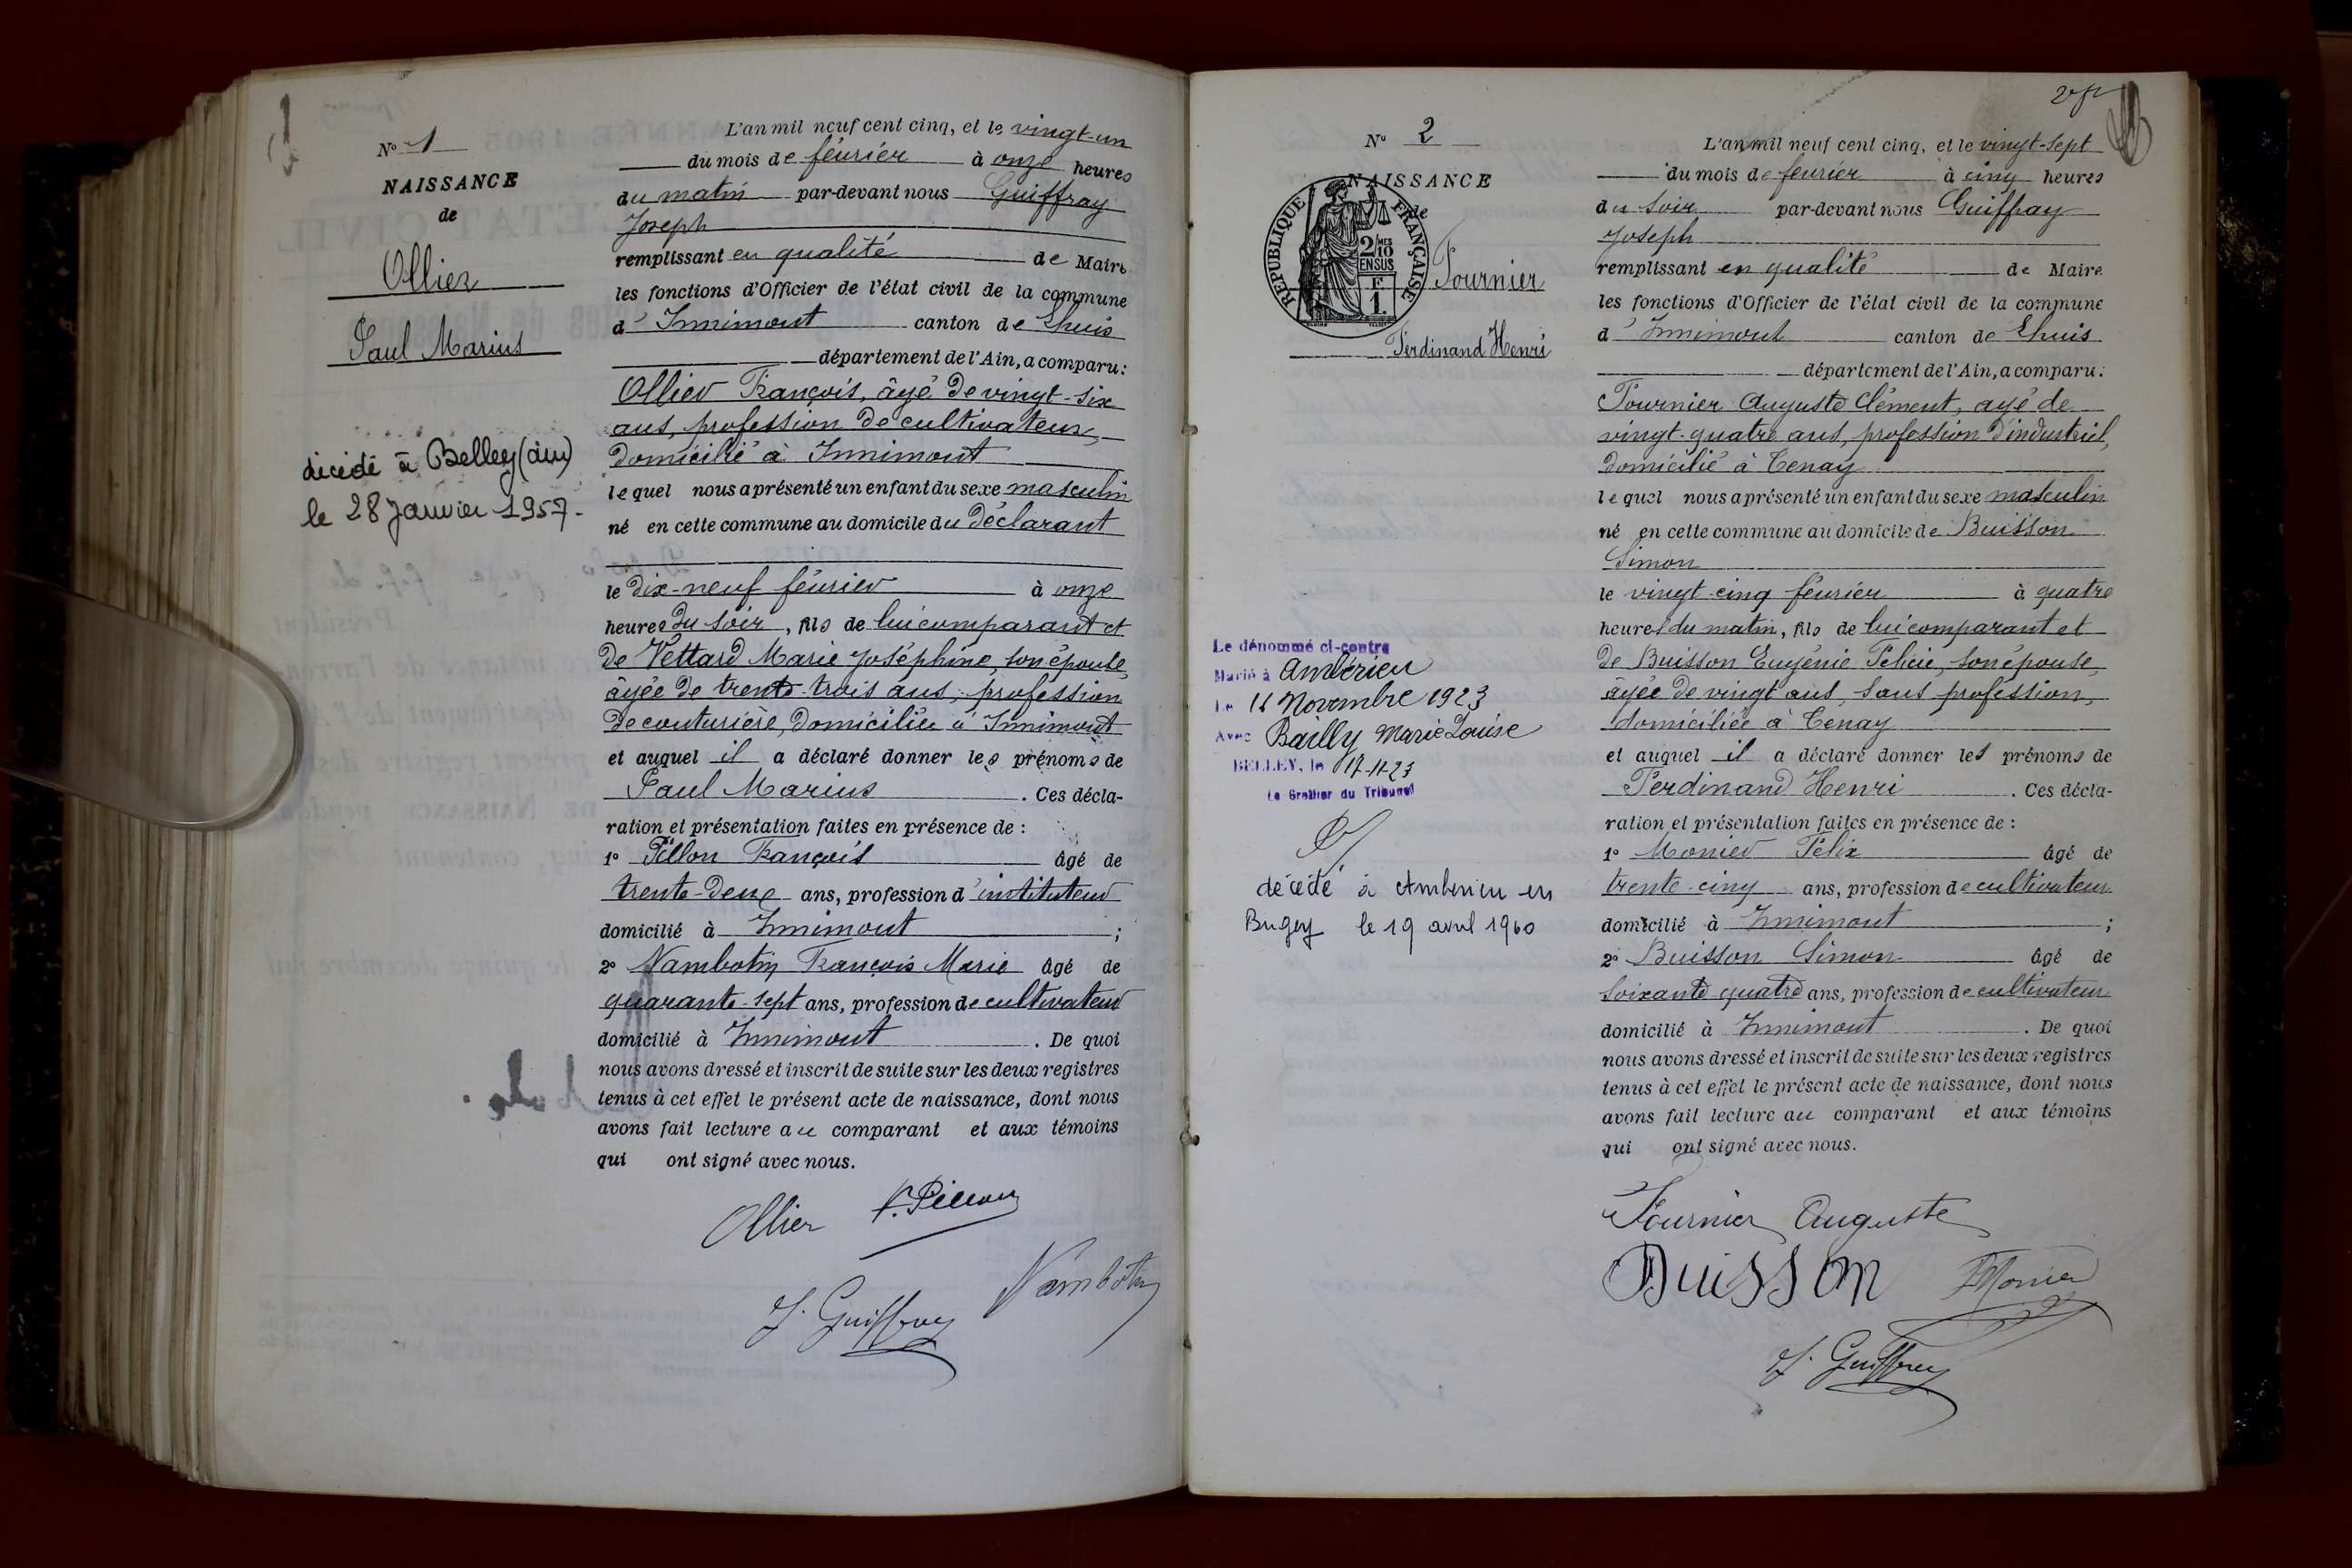 1
N° 1
NAISSANCE
de
Ollier
Paul Marius
décédé à Belley (Ain)
le 28 Janvier 1957.
L'an mil neuf cent cinq, et le vingt-un
du mois de février à onze heures
du matin par-devant nous Guiffray
Joseph
remplissant en qualité de Maire
les fonctions d'Officier de l'état civil de la commune
d'Innimont canton de Lhuis
département de l'Ain, a comparu:
Ollier François, âgé de vingt-six
ans, profession de cultivateur,
domicilié à Innimont
lequel nous a présenté un enfant du sexe masculin
né en cette commune au domicile du déclarant
le dix-neuf février à onze
heures du soir, fils de lui comparant et
de Vettard Marie Joséphine, son épouse,
âgée de trente-trois ans, profession
de couturière, domiciliée à Innimont
et auquel il a déclaré donner les prénoms de
Paul Marius. Ces décla-
ration et présentation faites en présence de :
1° Pillon François âgé de
trente-deux ans, profession d'instituteur
domicilié à Innimont ;
2° Nambotin François Marie âgé de
quarante-sept ans, profession de cultivateur
domicilié à Innimont. De quoi
nous avons dressé et inscrit de suite sur les deux registres
tenus à cet effet le présent acte de naissance, dont nous
avons fait lecture au comparant et aux témoins
qui ont signé avec nous.
Ollier F. Pillon
J. Guiffray Nambotin
N° 2
NAISSANCE
de
REPUBLIQUE FRANÇAISE
2/10 MES
EN SUS
F
1.
Fournier
Ferdinand Henri
Le dénommé ci-contre
Marié à Ambérieu
Le 11 Novembre 1923
Avec Bailly Marie Louise
BELLEY, le 17-11-23
Le Greffier du Tribunal
décédé à Ambérieu en
Bugey le 19 avril 1960
L'an mil neuf cent cinq, et le vingt-sept
du mois de février à cinq heures
du soir par-devant nous Guiffray
Joseph
remplissant en qualité de Maire
les fonctions d'Officier de l'état civil de la commune
d'Innimont canton de Lhuis
département de l'Ain, a comparu:
Fournier Auguste Clément, âgé de
vingt-quatre ans, profession d'industriel,
domicilié à Tenay
lequel nous a présenté un enfant du sexe masculin
né en cette commune au domicile de Buisson
Simon
le vingt-cinq février à quatre
heures du matin, fils de lui comparant et
de Buisson Eugénie Félicie, son épouse,
âgée de vingt ans, sans profession,
domiciliée à Tenay
et auquel il a déclaré donner les prénoms de
Ferdinand Henri. Ces décla-
ration et présentation faites en présence de :
1° Monier Félix âgé de
trente-cinq ans, profession de cultivateur
domicilié à Innimont ;
2° Buisson Simon âgé de
soixante quatre ans, profession de cultivateur
domicilié à Innimont. De quoi
nous avons dressé et inscrit de suite sur les deux registres
tenus à cet effet le présent acte de naissance, dont nous
avons fait lecture au comparant et aux témoins
qui ont signé avec nous.
Fournier Auguste
Buisson F Monier
J. Guiffray